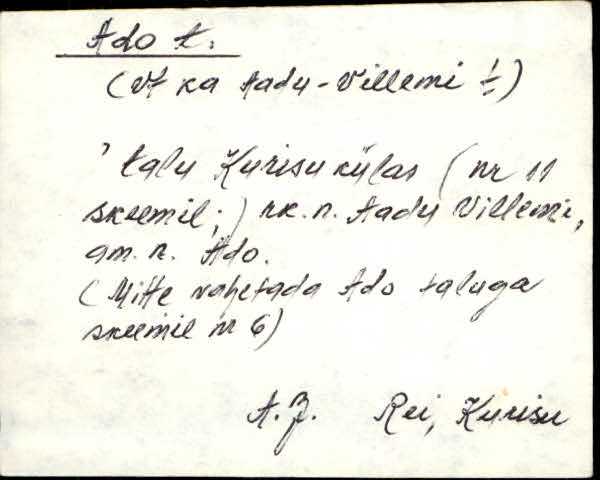 Ado t.
(Vt ka Aadu-Villemi t)
talu Kurisu külas (nr 11
skeemil;) rk. n. Aadu Villemi,
am. n. Ado.
(Mitte vahetada Ado taluga
skeemil nr 6)
A. J. Rei, Kurisu